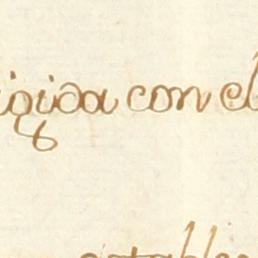 igida con el
estable